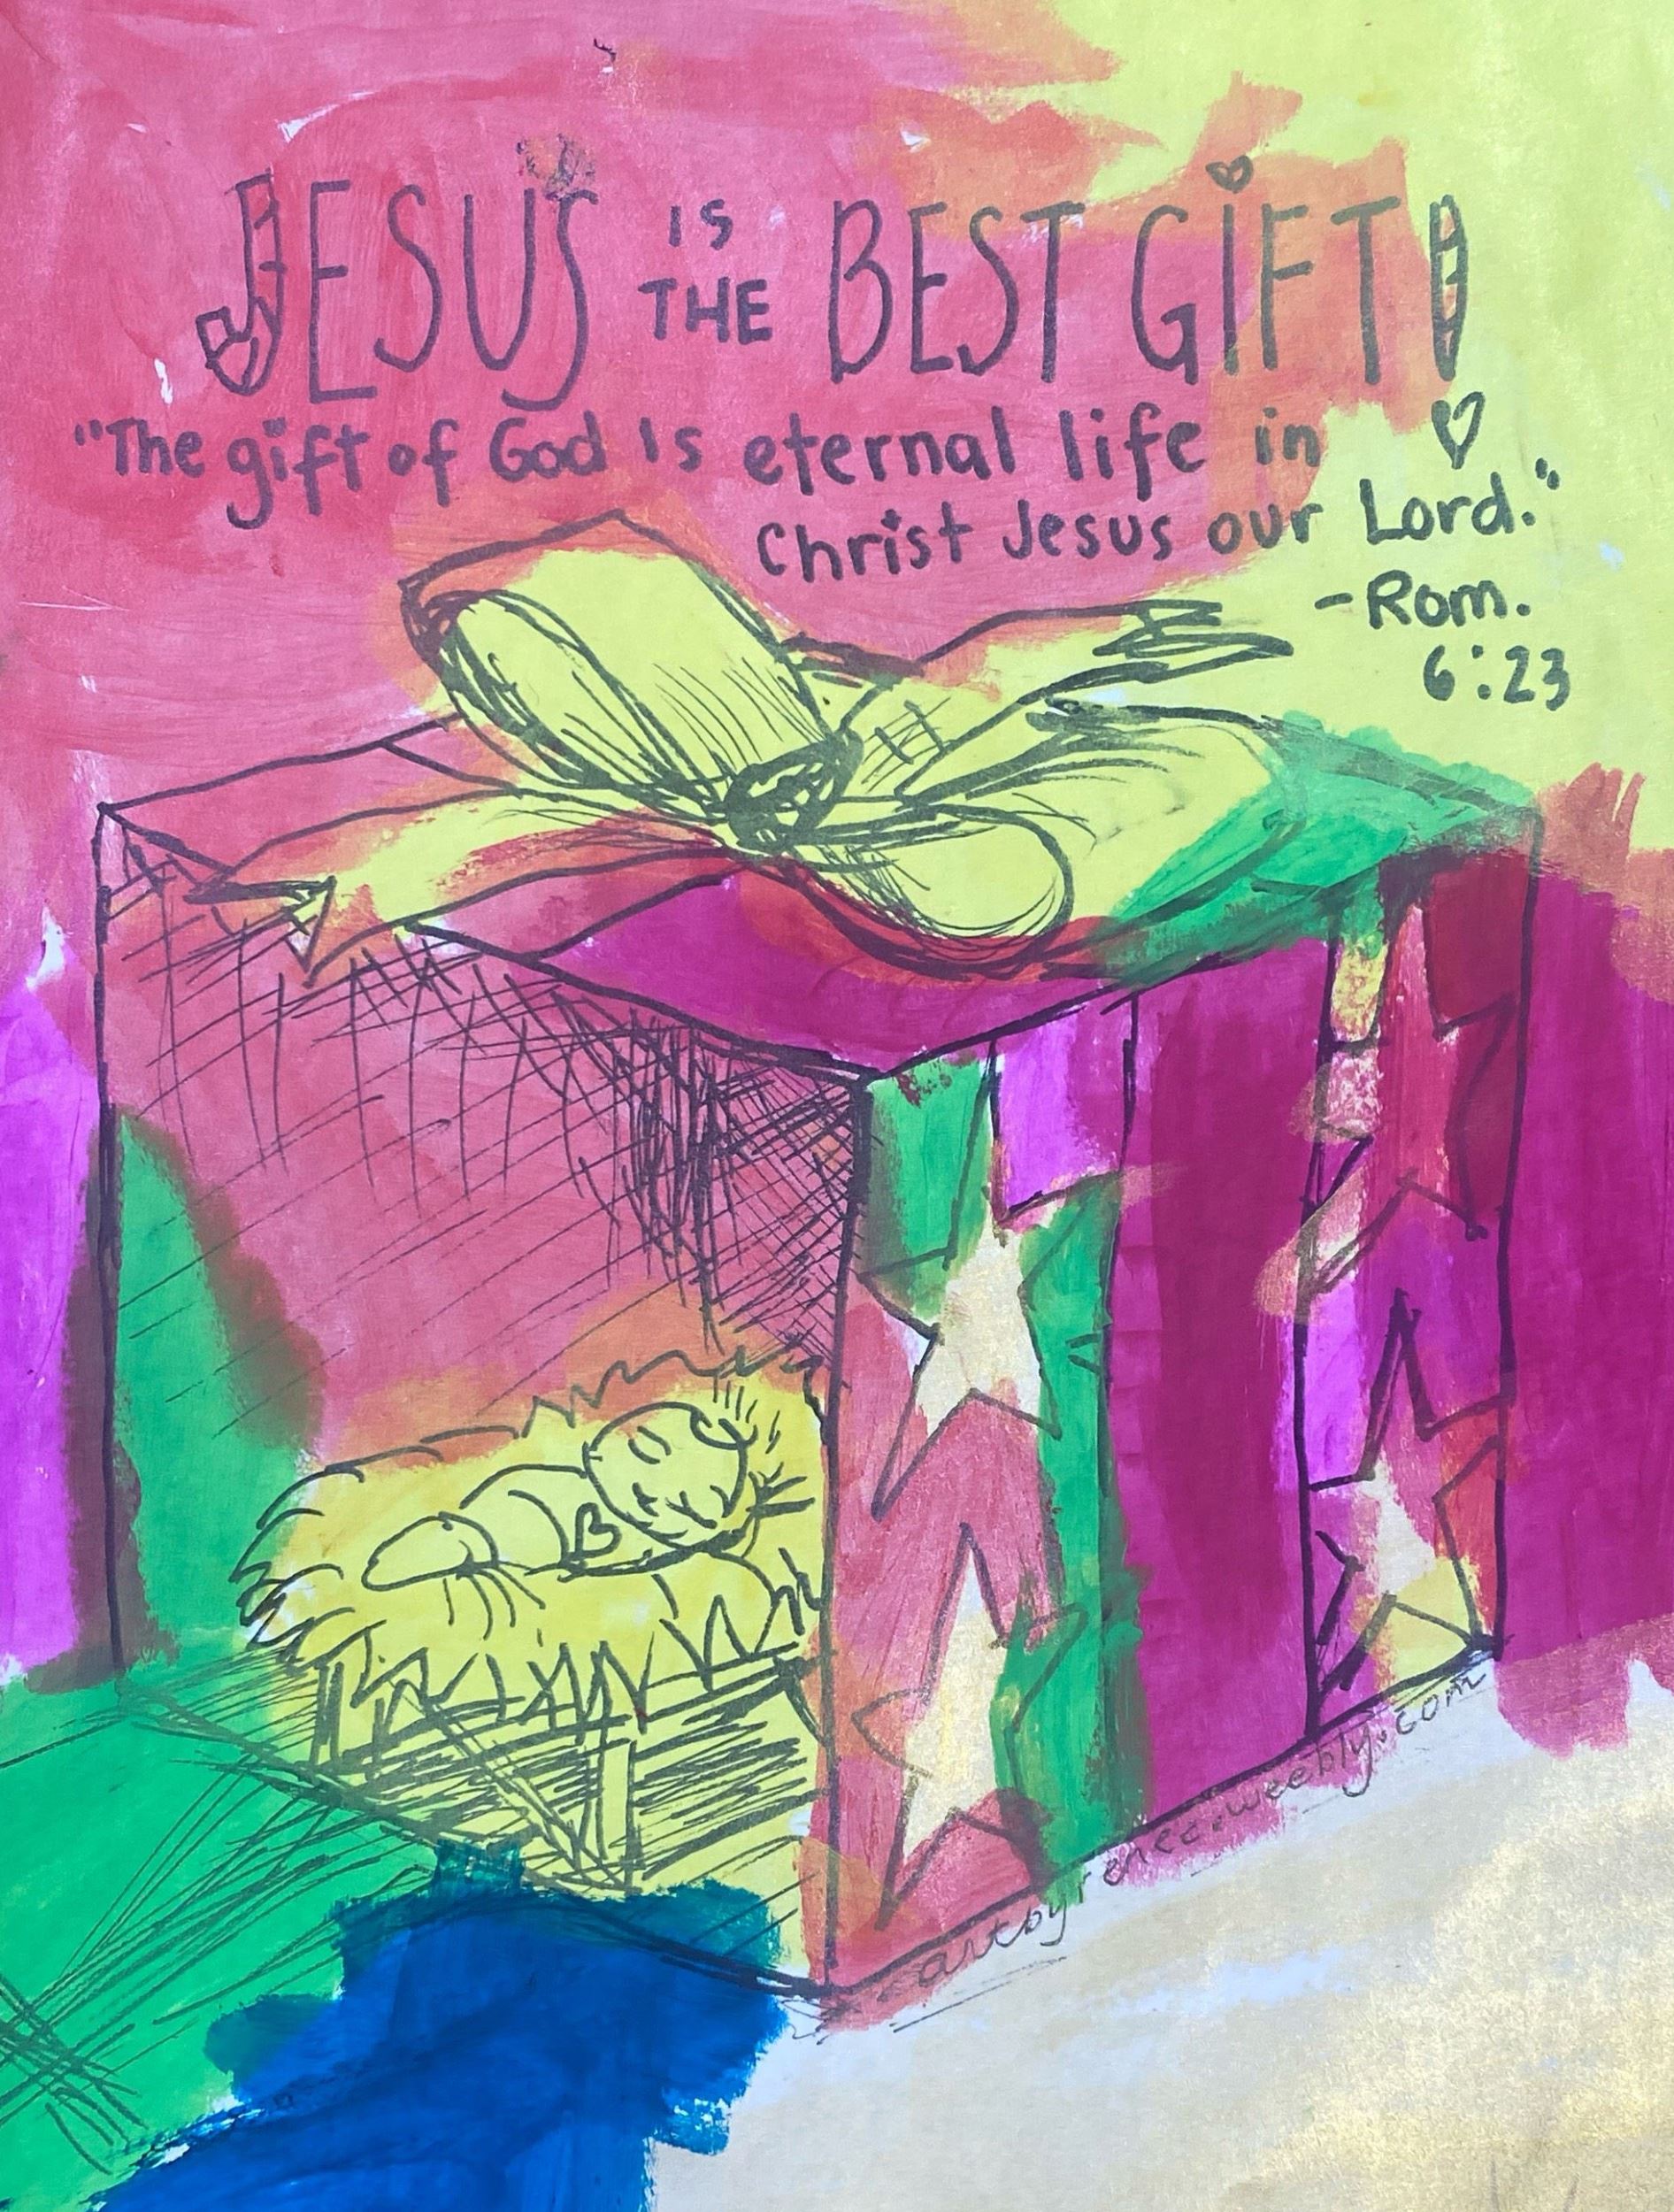 JESUS IS THE BEST GiFT!
"The gift of God Is eternal life in
Christ Jesus our Lord."
-Rom.
6:23
artbyrenee.weebly.com